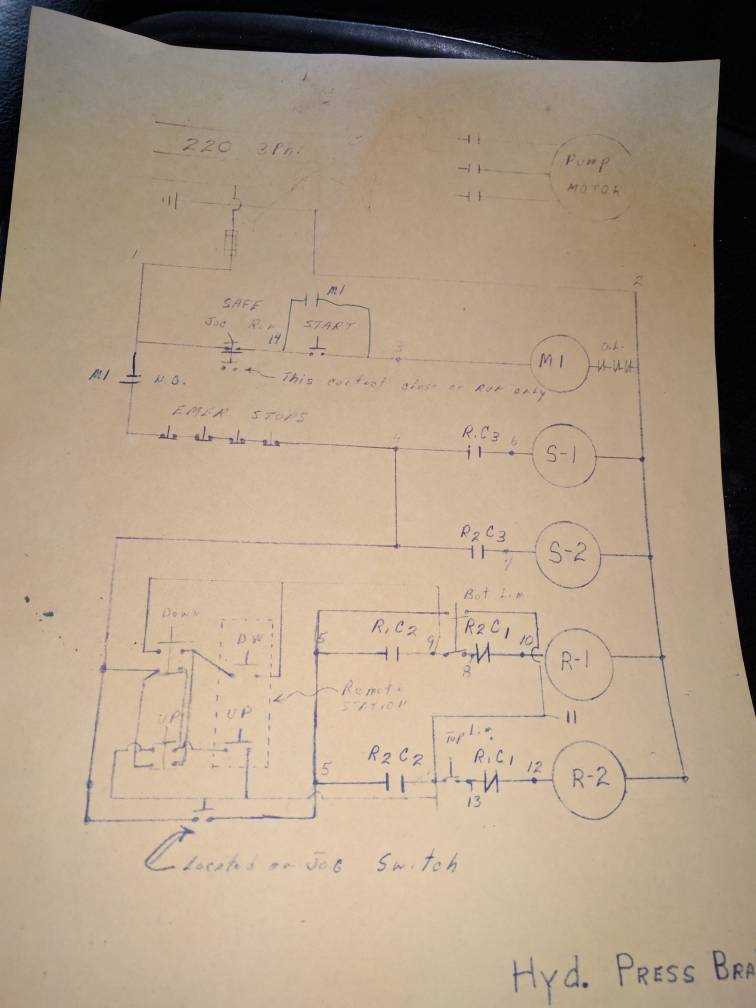 220 3 PH.
PUMP
MOTOR
1
2
SAFE
JOG RUN
14
M1
START
3
M1
O.L.
M1 N.O.
This contact close on RUN only
EMER STOPS
4
R1C3
6
S-1
R2C3
7
S-2
Bot Lim
DOWN
DW
5
R1C2
9
R2C1
10
8
R-1
Remote
STATION
UP
UP
11
Top Lim
5
R2C2
R1C1
12
13
R-2
Located on JOG Switch
Hyd. PRESS BRA